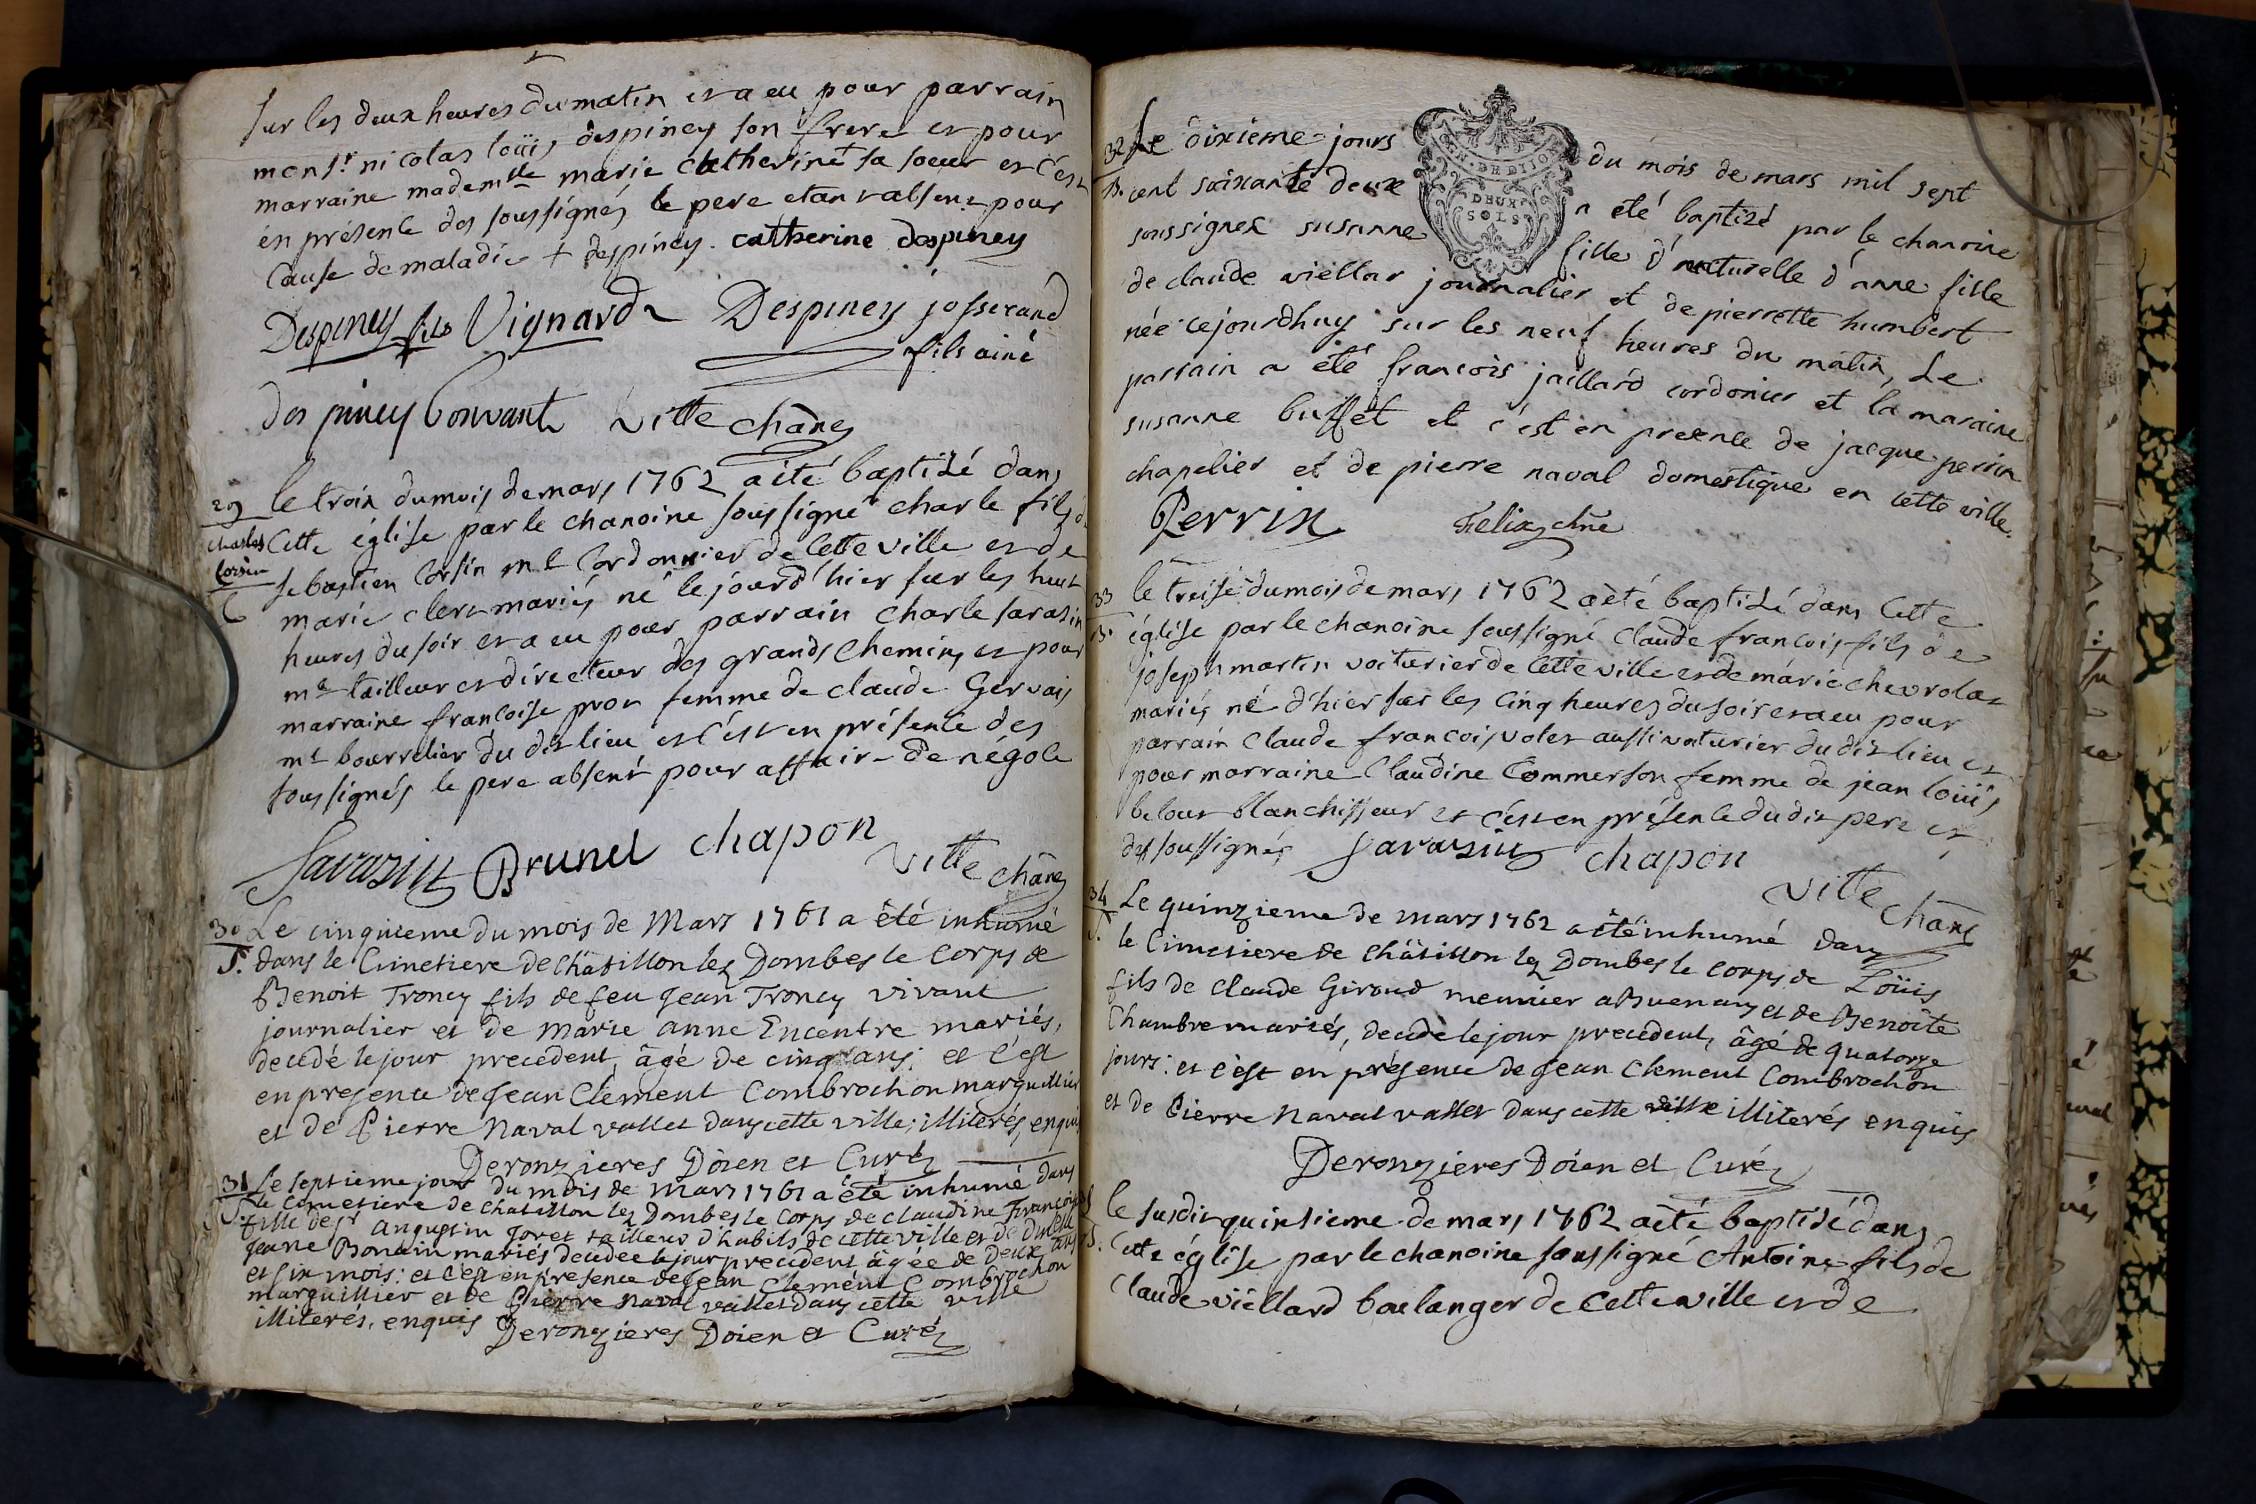 sur les deux heures du matin et a eu pour parrain
monsr. nicolas loüis despiney son frere et pour
marraine mademlle marie catherine sa soeur et c'est
en présence des soussignés le pere etant absent pour
cause de maladie + despiney. catherine despiney
Despiney fils Vignard Despiney josserand
fils ainé
despiney Convant Vitte chāne
29 le trois du mois de mars 1762 a été baptisé dans
charles cette église par le chanoine soussigné charle fils de
Corsin sebastien Corsin mt Cordonnier de Cette ville et de
marie clerc mariés né le jourd'hier sur les huit
heures du soir et a eu pour parrain charle sarasin
mt tailleur et directeur des grands chemins et pour
marraine francoise pron femme de claude Gervais
mt bourrelier du dit lieu et c'est en présence des
soussignés le pere absent pour affaire de négoce
Sarasin Brunel chapon
Vitte chāne
30 Le cinquieme du mois de Mars 1761 a été inhumé
S. dans le Cimetiere de Châtillon les Dombes le Corps de
Benoit Troncy fils de feu Jean Troncy vivant
journalier et de Marie anne Encentre mariés,
decedé le jour precedent, âgé de cinq ans; et c'est
en presence de Jean Clement Combrochon marguillier
et de Pierre Naval vallet dans cette ville; illiterés, enquis
Deronzieres Doien et Curé
31 Le septieme jour du mois de Mars 1761 a été inhumé dans
S. le Cimetiere de Châtillon les Dombes le Corps de Claudine Francoise
fille de sr augustin Joret tailleur d'habits de cette ville et de dmlle
Jeane Bondin mariés decedée le jour precedent âgée de Deux ans
et six mois; et c'est en presence de Jean Clement Combrochon
marguillier et de Pierre Naval vallet dans cette ville
illiterés, enquis Deronzieres Doien et Curé
GEN. DE DIJON
DEUX
SOLS
32 Le dixieme jours du mois de mars mil sept
B. cent soixante deux a été baptisé par le chanoine
soussignex susanne fille d' naturelle d'anne fille
de claude viellar journalier et de pierrette humbert
née cejourdhuy sur les neuf heures du matin, Le
parrain a été francois jaillard cordonier et la maraine
susanne buffet et c'est en presence de jacque perrin
chapelier et de pierre naval domestique en cette ville.
Perrin Felix chne
33 le treise du mois de mars 1762 a été baptisé dans Cette
B. église par le chanoine soussigné Claude francois fils de
joseph martin voiturier de Cette ville et de marie chevrolat
mariés né d'hier sur les Cinq heures du soir et a eu pour
parrain Claude francois volet aussi voiturier du dit lieu et
pour marraine Claudine Commerson femme de jean loüis
belout blanchisseur et c'est en présence du dit pere et
des soussignés Sarasin chapon
Vitte chāne
34 Le quinzieme de mars 1762 a été inhumé dans
S. le Cimetiere de Châtillon les Dombes le corps de Loüis
fils de Claude Giroud meunier a Buenans et de Benoîte
Chambre mariés, decedé le jour precedent, âgé de quatorze
jours: et c'est en présence de Jean Clement Combrochon
et de Pierre Naval vallet dans cette ville illiterés enquis
Deronzieres Doien et Curé
le susdit quinsieme de mars 1762 a été baptisé dans
B. Cette église par le chanoine soussigné Antoine fils de
Claude viellard boulanger de Cette ville et de